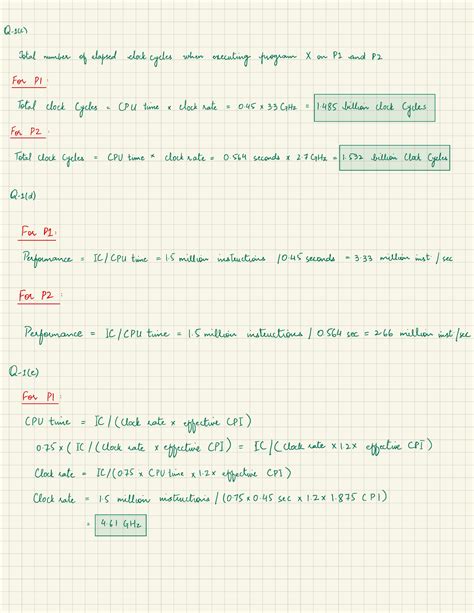 Q.1(c)
Total number of elapsed clock cycles when executing program X on P1 and P2
For P1:
Total clock Cycles = CPU time × clock rate = 0.45 × 3.3 GHz = 1.485 billion clock Cycles
For P2:
Total Clock Cycles = CPU time × clock rate = 0.564 seconds × 2.7 GHz = 1.532 billion Clock Cycles
Q.1(d)
For P1:
Performance = IC/CPU time = 1.5 million instructions /0.45 seconds = 3.33 million inst/sec
For P2:
Performance = IC/CPU time = 1.5 million instructions / 0.564 sec = 2.66 million inst/sec
Q-1(e)
For P1:
CPU time = IC/(Clock rate × effective CPI)
0.75 × (IC/(Clock rate × effective CPI) = IC/(Clock rate × 1.2 × effective CPI)
Clock rate = IC/(0.75 × CPU time × 1.2 × effective CPI)
Clock rate = 1.5 million instructions / (0.75 × 0.45 sec × 1.2 × 1.875 CPI)
= 4.61 GHz